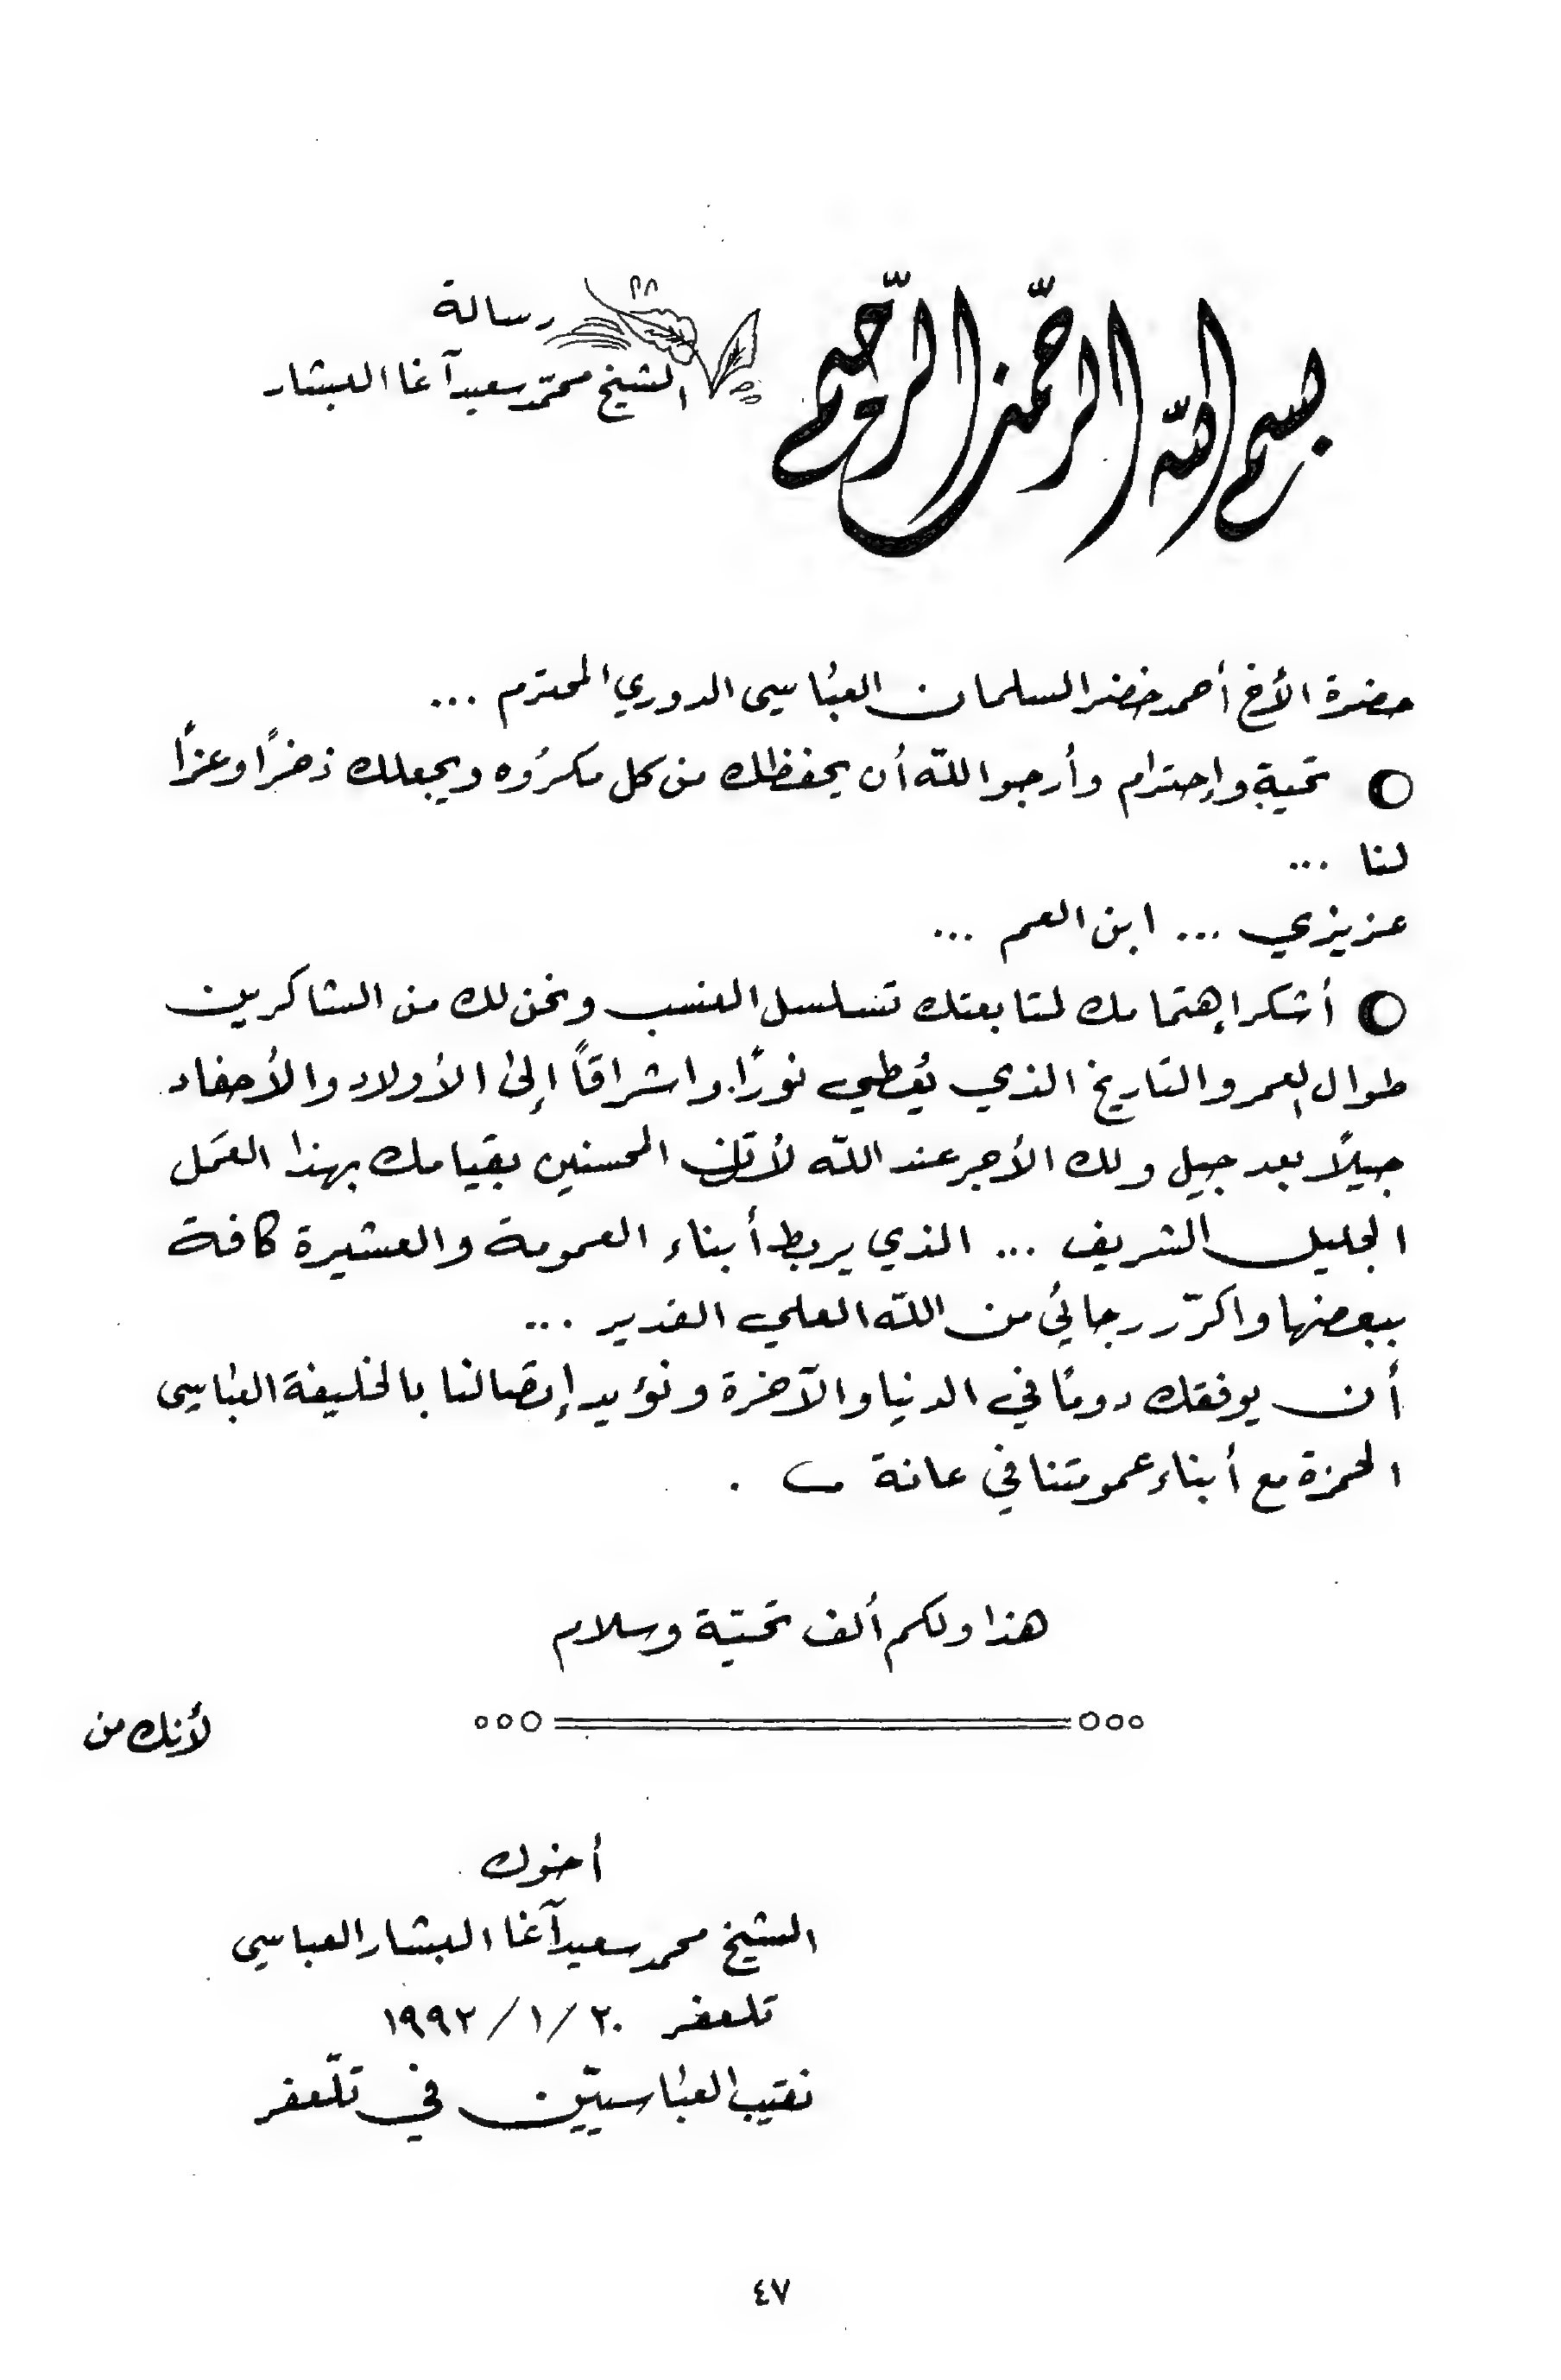 بسم الله الرحمن الرحيم
رسالة
الشيخ محمّد سعيد آغا البشار
حضرة الأخ أحمد خضر السلمان العبّاسي الدوري المحترم ...
تحية وإحترام وأرجو اللّه أن يحفظك من كل مكرُوه ويجعلك ذخرًا وعزًا
لنا ...
عزيزي ... ابن العم ...
أشكر إهتمامك لمتابعتك تسلسل النسب ونحن لك من الشاكرين
طوال العمر والتاريخ الذي يُعطي نورًا واشراقاً إلى الأولاد والأحفاد
جيلاً بعد جيل ولك الأجر عند اللّه لأنك المحسنين بقيامك بهذا العَمل
الجليل الشريف ... الذي يربط أبناء العمومة والعشيرة كافة
ببعضها واكرّر رجائي من اللّه العلي القدير ...
أن يوفقك دومًا في الدنيا والآخرة ونؤيد إتصالنا بالخليفة العبّاسي
الحمزة مع أبناء عمومتنا في عانة .
هذا ولكم ألف تحيّة وسلام
لأنك من
أخوك
الشيخ محمد سعيد آغا البشار العباسي
تلعفر ٢٠/١/١٩٩٢
نقيب العبّاسيّين في تلّعفر
٤٧